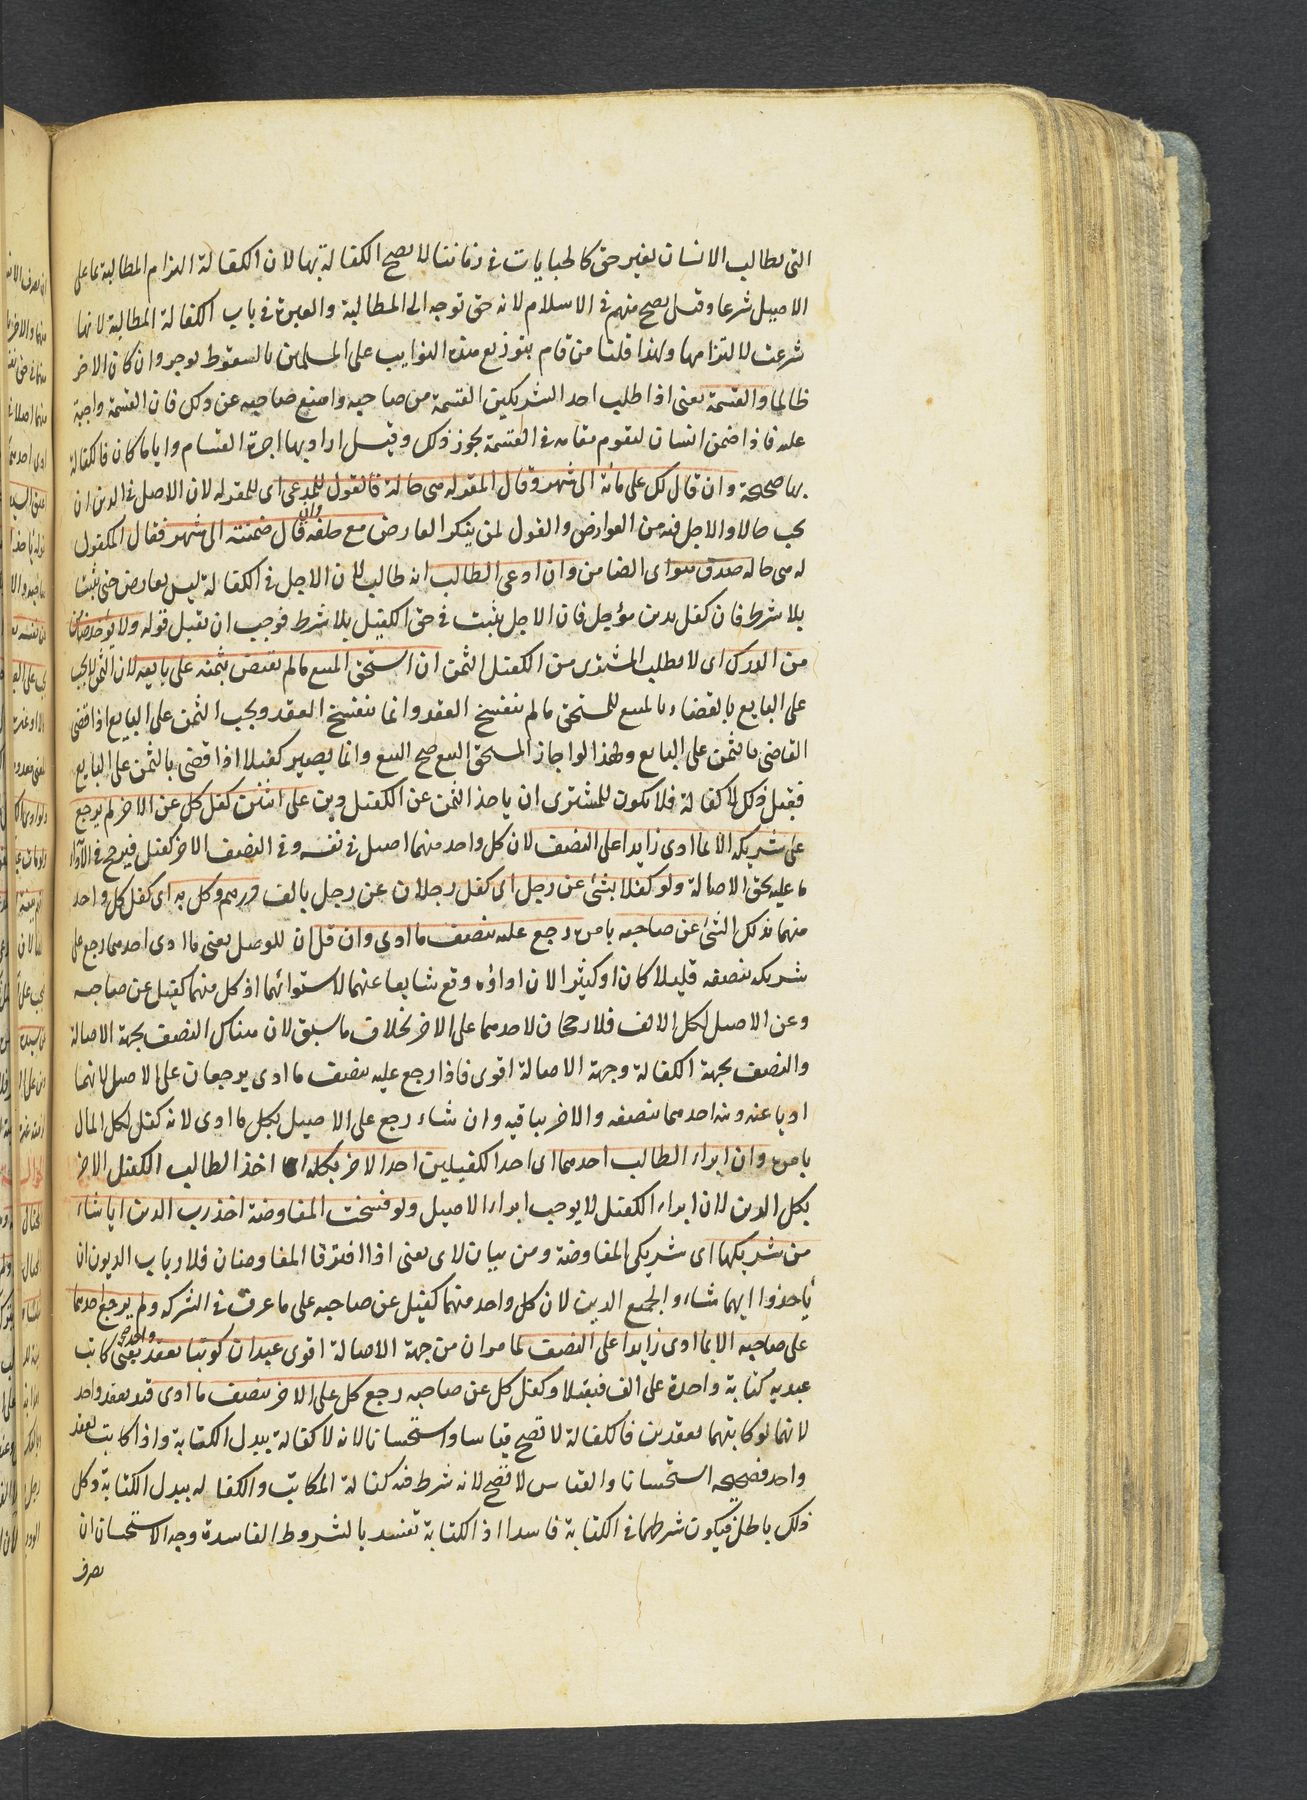 التى يطالب الانسان بغير حق كالجبايات فى زماننا لا يصح الكفالة بها لان الكفالة التزام المطالبة بما على
الاصيل شرعا وقيل يصح منهم فى الاسلام لانه حق توجه الى المطالبة والعبرة فى باب الكفالة المطالبة لانها
شرعت لالتزامها ولهذا قلنا من قام بتوزيع هذه النوايب على المسلمين بالسقوط يوجر وان كان الاخر
ظالما والقسمة يعنى اذا طلب احد الشريكين القسمة من صاحبه وامتنع صاحبه عن ذلك فان القسمة واجبة
عليه فاذا ضمن انسان ليقوم مقامه فى القسمة يجوز ذلك وقيل اراد بها اجرة القسام واياما كان فالكفالة
بها صحيحة وان قال لك على مائة الى شهر وقال المقر له هى حالة فالقول للمدعى اى للمقر له لان الاصل فى الدين ان
يجب حالا والاجل فيه من العوارض والقول لمن ينكر العارض مع حلفه وان قال ضمنته الى شهر فقال المكفول
له هى حالة صدق هو اى الضامن وان ادعى الطالب انه طالب لان الاجل فى الكفالة ليس بعارض حتى يثبت
بلا شرط فان كفل بدين مؤجل فان الاجل يثبت فى حق الكفيل بلا شرط فوجب ان يقبل قوله ولا يؤخذ ضامن
من الدرك اى لا يطلب المشترى من الكفيل الثمن ان استحق المبيع ما لم يقض بثمنه على بايعه لان الثمن لا يجب
على البايع بالقضاء بالمبيع للمستحق ما لم ينفسخ العقد وانما ينفسخ العقد ويجب الثمن على البايع اذا قضى
القاضى بالثمن على البايع ولهذا لو اجاز المستحق البيع صح البيع وانما يصير كفيلا اذا قضى بالثمن على البايع
فقبل ذلك لا كفالة فلا يكون للمشترى ان ياخذ الثمن عن الكفيل دين على اثنين كفل كل عن الاخر لم يرجع
على شريكه الا بما ادى زايدا على النصف لان كل واحد منهما اصيل فى نفسه وفى النصف الاخر كفيل فيرجح فى الاداء
ما عليه بحق الاصالة ولو كفلا بشئ عن رجل اى كفل رجلان عن رجل بالف درهم وكل به اى كفل كل واحد
منهما بذلك الشئ عن صاحبه بامره رجع عليه بنصف ما ادى وان قل ان للوصل يعنى ما ادى احدهما رجع على
شريكه بنصفه قليلا كان او كثيرا لان اداؤه وقع شايعا عنهما لاستوائهما اذ كل منهما كفيل عن صاحبه
وعن الاصيل بكل الالف فلا رجحان لاحدهما على الاخر بخلاف ما سبق لان هناك النصف بجهة الاصالة
والنصف بجهة الكفالة وجهة الاصالة اقوى فاذا رجع عليه بنصف ما ادى يرجعان على الاصيل لانهما
اديا عنه ونه احدهما بنصفه والاخر بباقيه وان شاء رجع على الاصيل بكل ما ادى لانه كفل بكل المال
بامره وان ابراء الطالب احدهما اى احد الكفيلين احد الاخر بكله اخذ الطالب الكفيل الاخر
بكل الدين لان ابراء الكفيل لا يوجب ابراء الاصيل ولو فسخت المفاوضة اخذ رب الدين ايا شاء
من شريكها اى شريكى المفاوضة ومن بيان لاى يعنى اذا افترقا المفاوضان فلارباب الديون ان
يأخذوا ايهما شاء والجميع الدين لان كل واحد منهما كفيل عن صاحبه على ما عرف فى الشركه ولم يرجع احدهما
على صاحبه الا بما ادى زايدا على النصف لما مر ان من جهة الاصالة اقوى عبدان كوتبا بعقد واحد يعنى كاتب
عبديه كتابة واحدة على الف فقبلا وكفل كل عن صاحبه رجع كل على الاخر بنصف ما ادى قيد بعقد واحد
لانهما لو كاتبهما بعقدين فالكفالة لا تصح قياسا واستحسانا لانه لا كفالة ببدل الكتابة واذا كاتب بعقد
واحد فصحيحه استحسانا والقياس لا تصح لانه شرط فيه كفالة المكاتب والكفالة ببدل الكتابة وكل
ذلك باطل فيكون شرطهما فى الكتابة فاسدا اذ الكتابة تفسد بالشروط الفاسدة وجه الاستحسان ان
يصرف